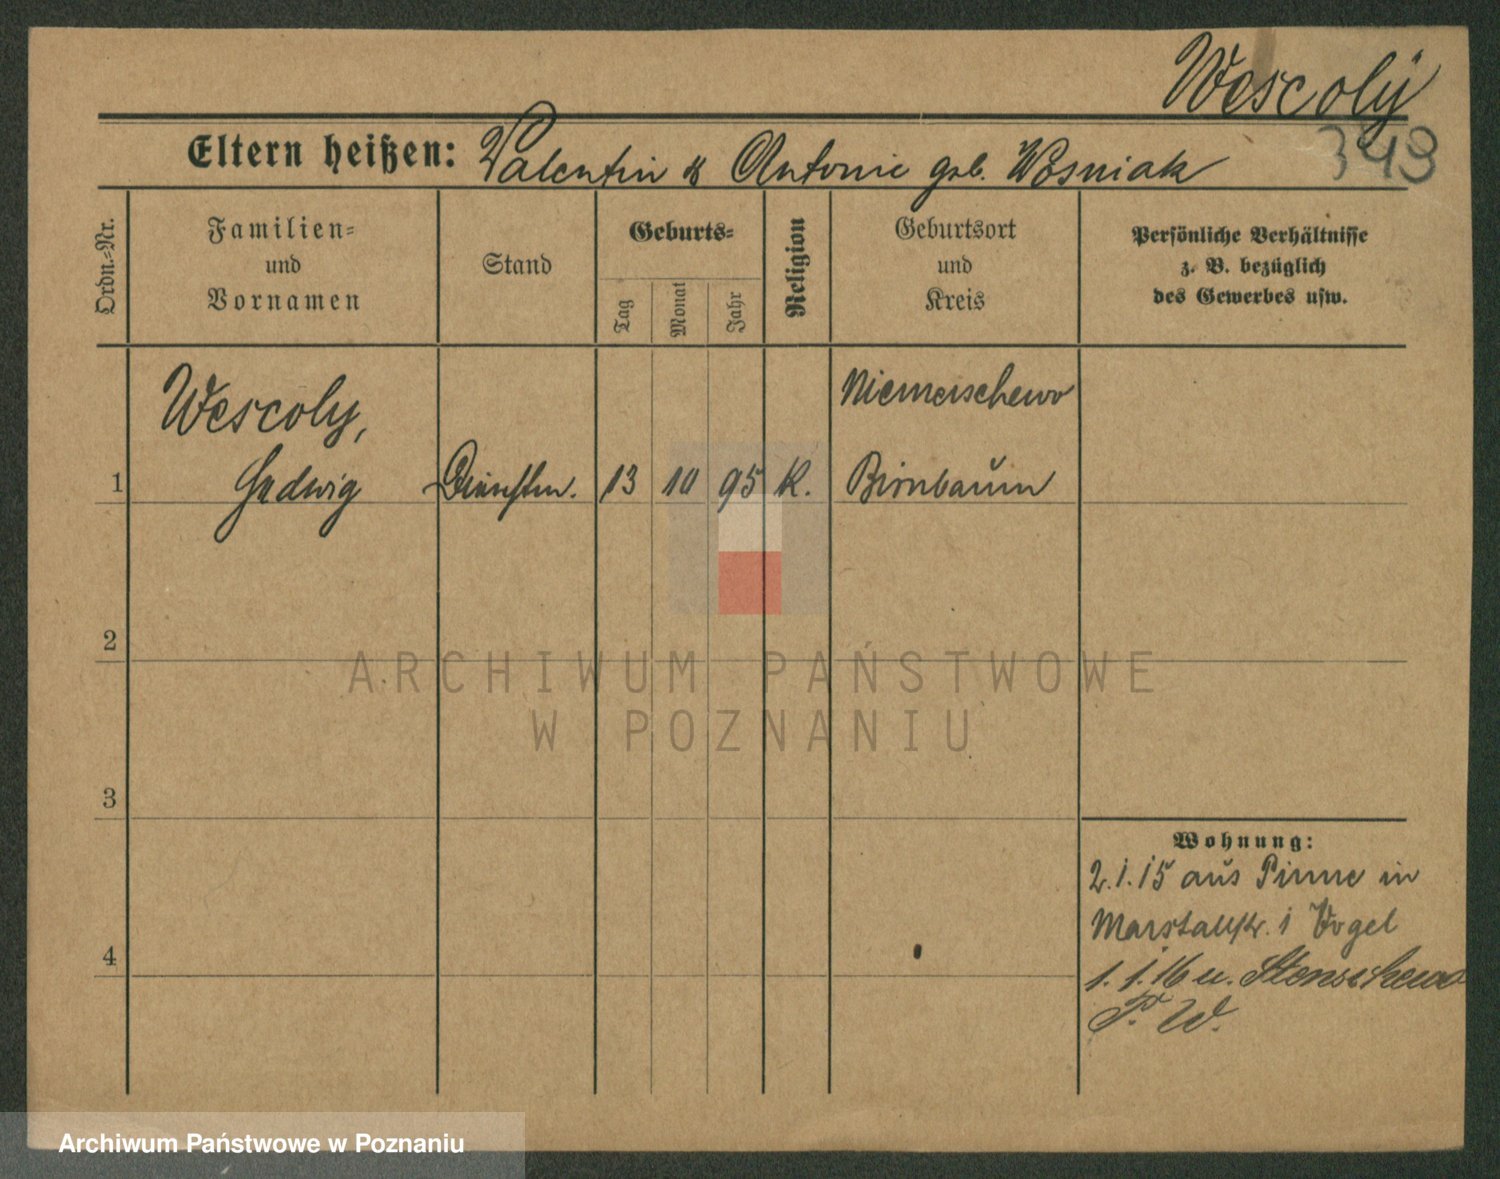 Wescoly
343
Eltern heißen: Valentin & Antonie geb. Wosniak
Ordn.-Nr.
Familien-
und
Vornamen
Stand
Geburts-
Tag
Monat
Jahr
Religion
Geburtsort
und
Kreis
Persönliche Verhältnisse
z. B. bezüglich
des Gewerbes usw.
Wescoly, Niemerschewo
1 Hedwig Dienstm. 13 10 95 K. Birnbaum
2
ARCHIWUM PAŃSTWOWE
W POZNANIU
3
Wohnung:
2.1.15 aus Pinne in
Marstallstr. 1 Vogel
4
1. 1. 16 n. Stenschewo
P. W.
Archiwum Państwowe w Poznaniu